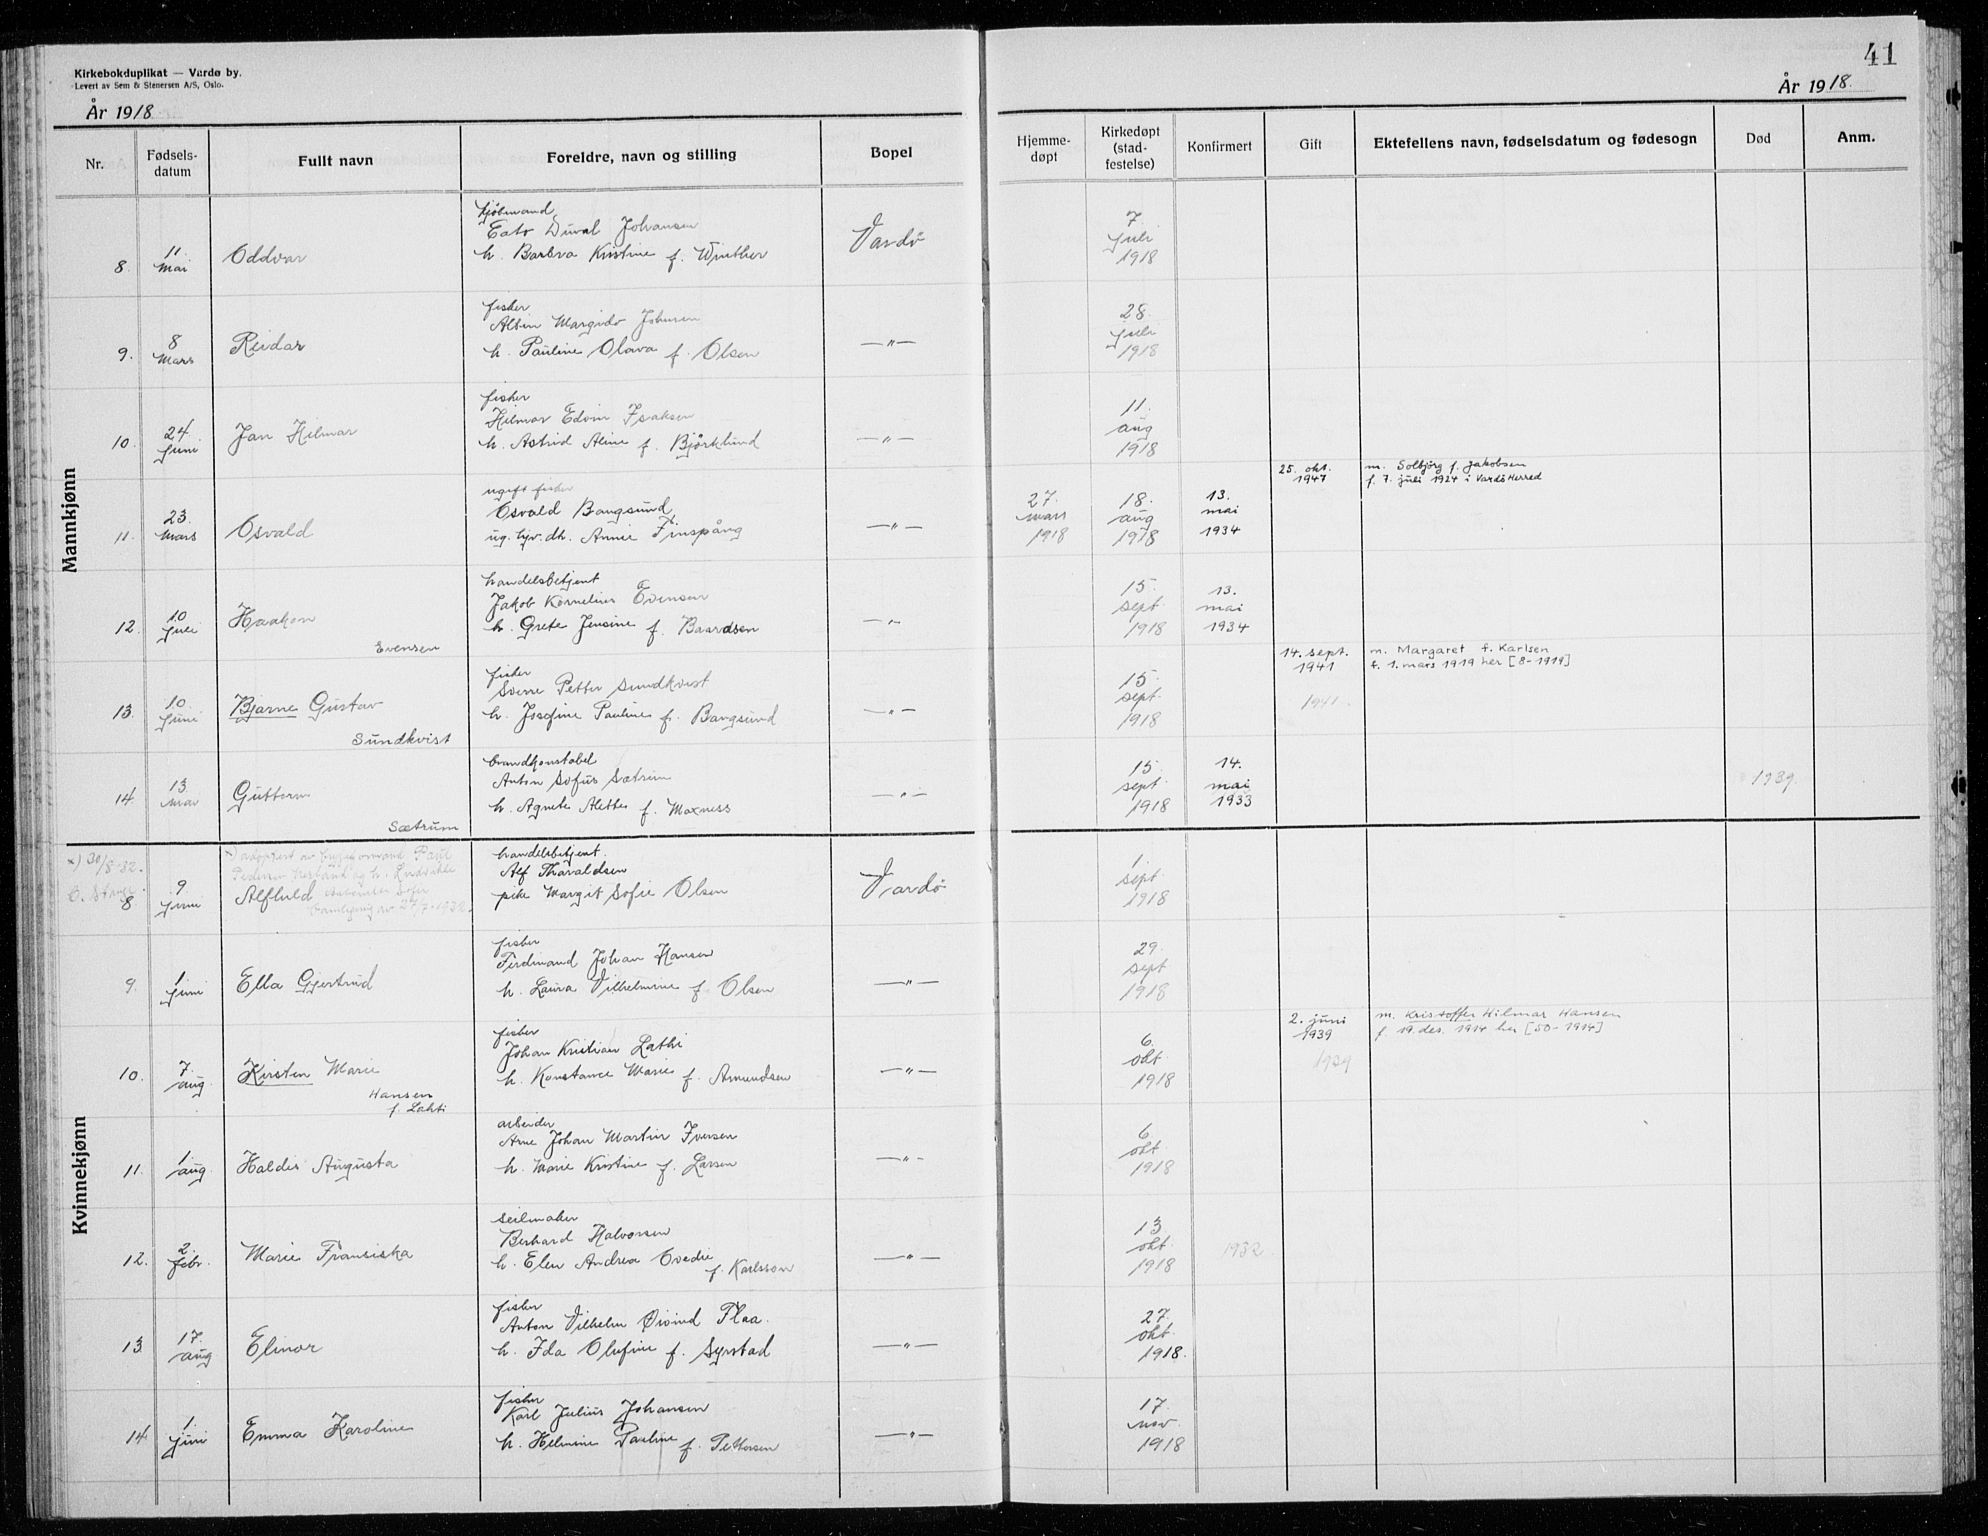 Kirkebokduplikat — Vardø by.
Levert av Sem & Stenersen A/S, Oslo.
År 1918
41
År 1918.
Nr.
Fødsels-
datum
Fullt navn
Foreldre, navn og stilling
Bopel
Hjemme-
døpt
Kirkedøpt
(stad-
festelse)
Konfirmert
Gift
Ektefellens navn, fødselsdatum og fødesogn
Død
Anm.
Mannkjønn
8. 11. Mai Oddvar
kjøbmand
Duval Johansen
h. Barbra Kristine f. Winther
Vardö
7 juli 1918
9. 8 Mars Reidar
fisker
Albin Margido Johnsen
h. Pauline Olava f. Olsen
—"—
28. juli 1918
10. 24 juni Jan Hilmar
fisker
Hilmar Edvin Isaksen
h. Astrid Aline f. Björklund
—"—
11. aug 1918
11. 23. Mars Osvald
ugift fisker
Osvald Bangsund
ug. tjv. dh. Anna Finspång
—"—
27. mars 1918
18. aug 1918
13. mai 1934
25. okt. 1947
m. Solbjörg f. Jakobsen
f. 7. juli 1924 i Vardö Herred
12. 10 juli Haakon
Evensen
handelsbetjent
Jakob Kornelius Evensen
h. Grete Jensine f. Baardsen
—"—
15. sept. 1918
13. mai 1934
13. 10. juni Bjarne Gustav
Sundkvist
fisker
Sverre Petter Sundkvist
h. Josefine Pauline f. Bangsund
—"—
15 sept. 1918
14. sept. 1941
1941.
m. Margaret f. Karlsen
f. 1. mars 1919 her [8-1919]
14. 13. Mai Guttorm
Sætrum
brandkonstabel
Anton Sofus Sætrum
h. Agnete Alette f. Moxness
—"—
15 sept. 1918
14. mai 1933
1939.
Kvinnekjønn
x) 30/8-32.
x) adoptert av Paul
Pedersen og h. Ludvikke
27/7-1932.
8 9. juni Alfhild
handelsbetjent.
Alf Tharaldsen
pike Margit Sofie Olsen
Vardö
1. sept. 1918
9. 1 juni Ella Gjertrud
fisker
Ferdinand Johan Hansen
h. Laura Vilhelmine f. Olsen
—"—
29. sept 1918
10. 7. aug. Kirsten Marie
Hansen
f. Lahti
fisker
Johan Kristian Lathi
h. Konstance Marie f. Amundsen
—"—
6. okt 1918
2. juni 1939
1939
m. Kristoffer Hilmar Hansen
f. 19. des. 1914 her [50-1914]
11. 1. aug. Haldis Augusta
arbeider
Arne Johan Martin Iversen
h. Marie Kristine f. Larsen
—"—
6 okt 1918
12. 2. febr. Marie Fransiska
seilmaker
Berhard Halvorsen
h. Elen Andrea Ovedie
f. Karlsson
—"—
13 okt. 1918
1932.
13 17. aug Elinor
fisker
Anton Vilhelm Øivind Flaa.
h. Ida Olufine f. Syrstad
—"—
27. okt. 1918.
14 1. juni Emma Karoline
fisker
Karl Julius Johansen
h. Helmine Pauline f. Pettersen
—"—
17. nov. 1918